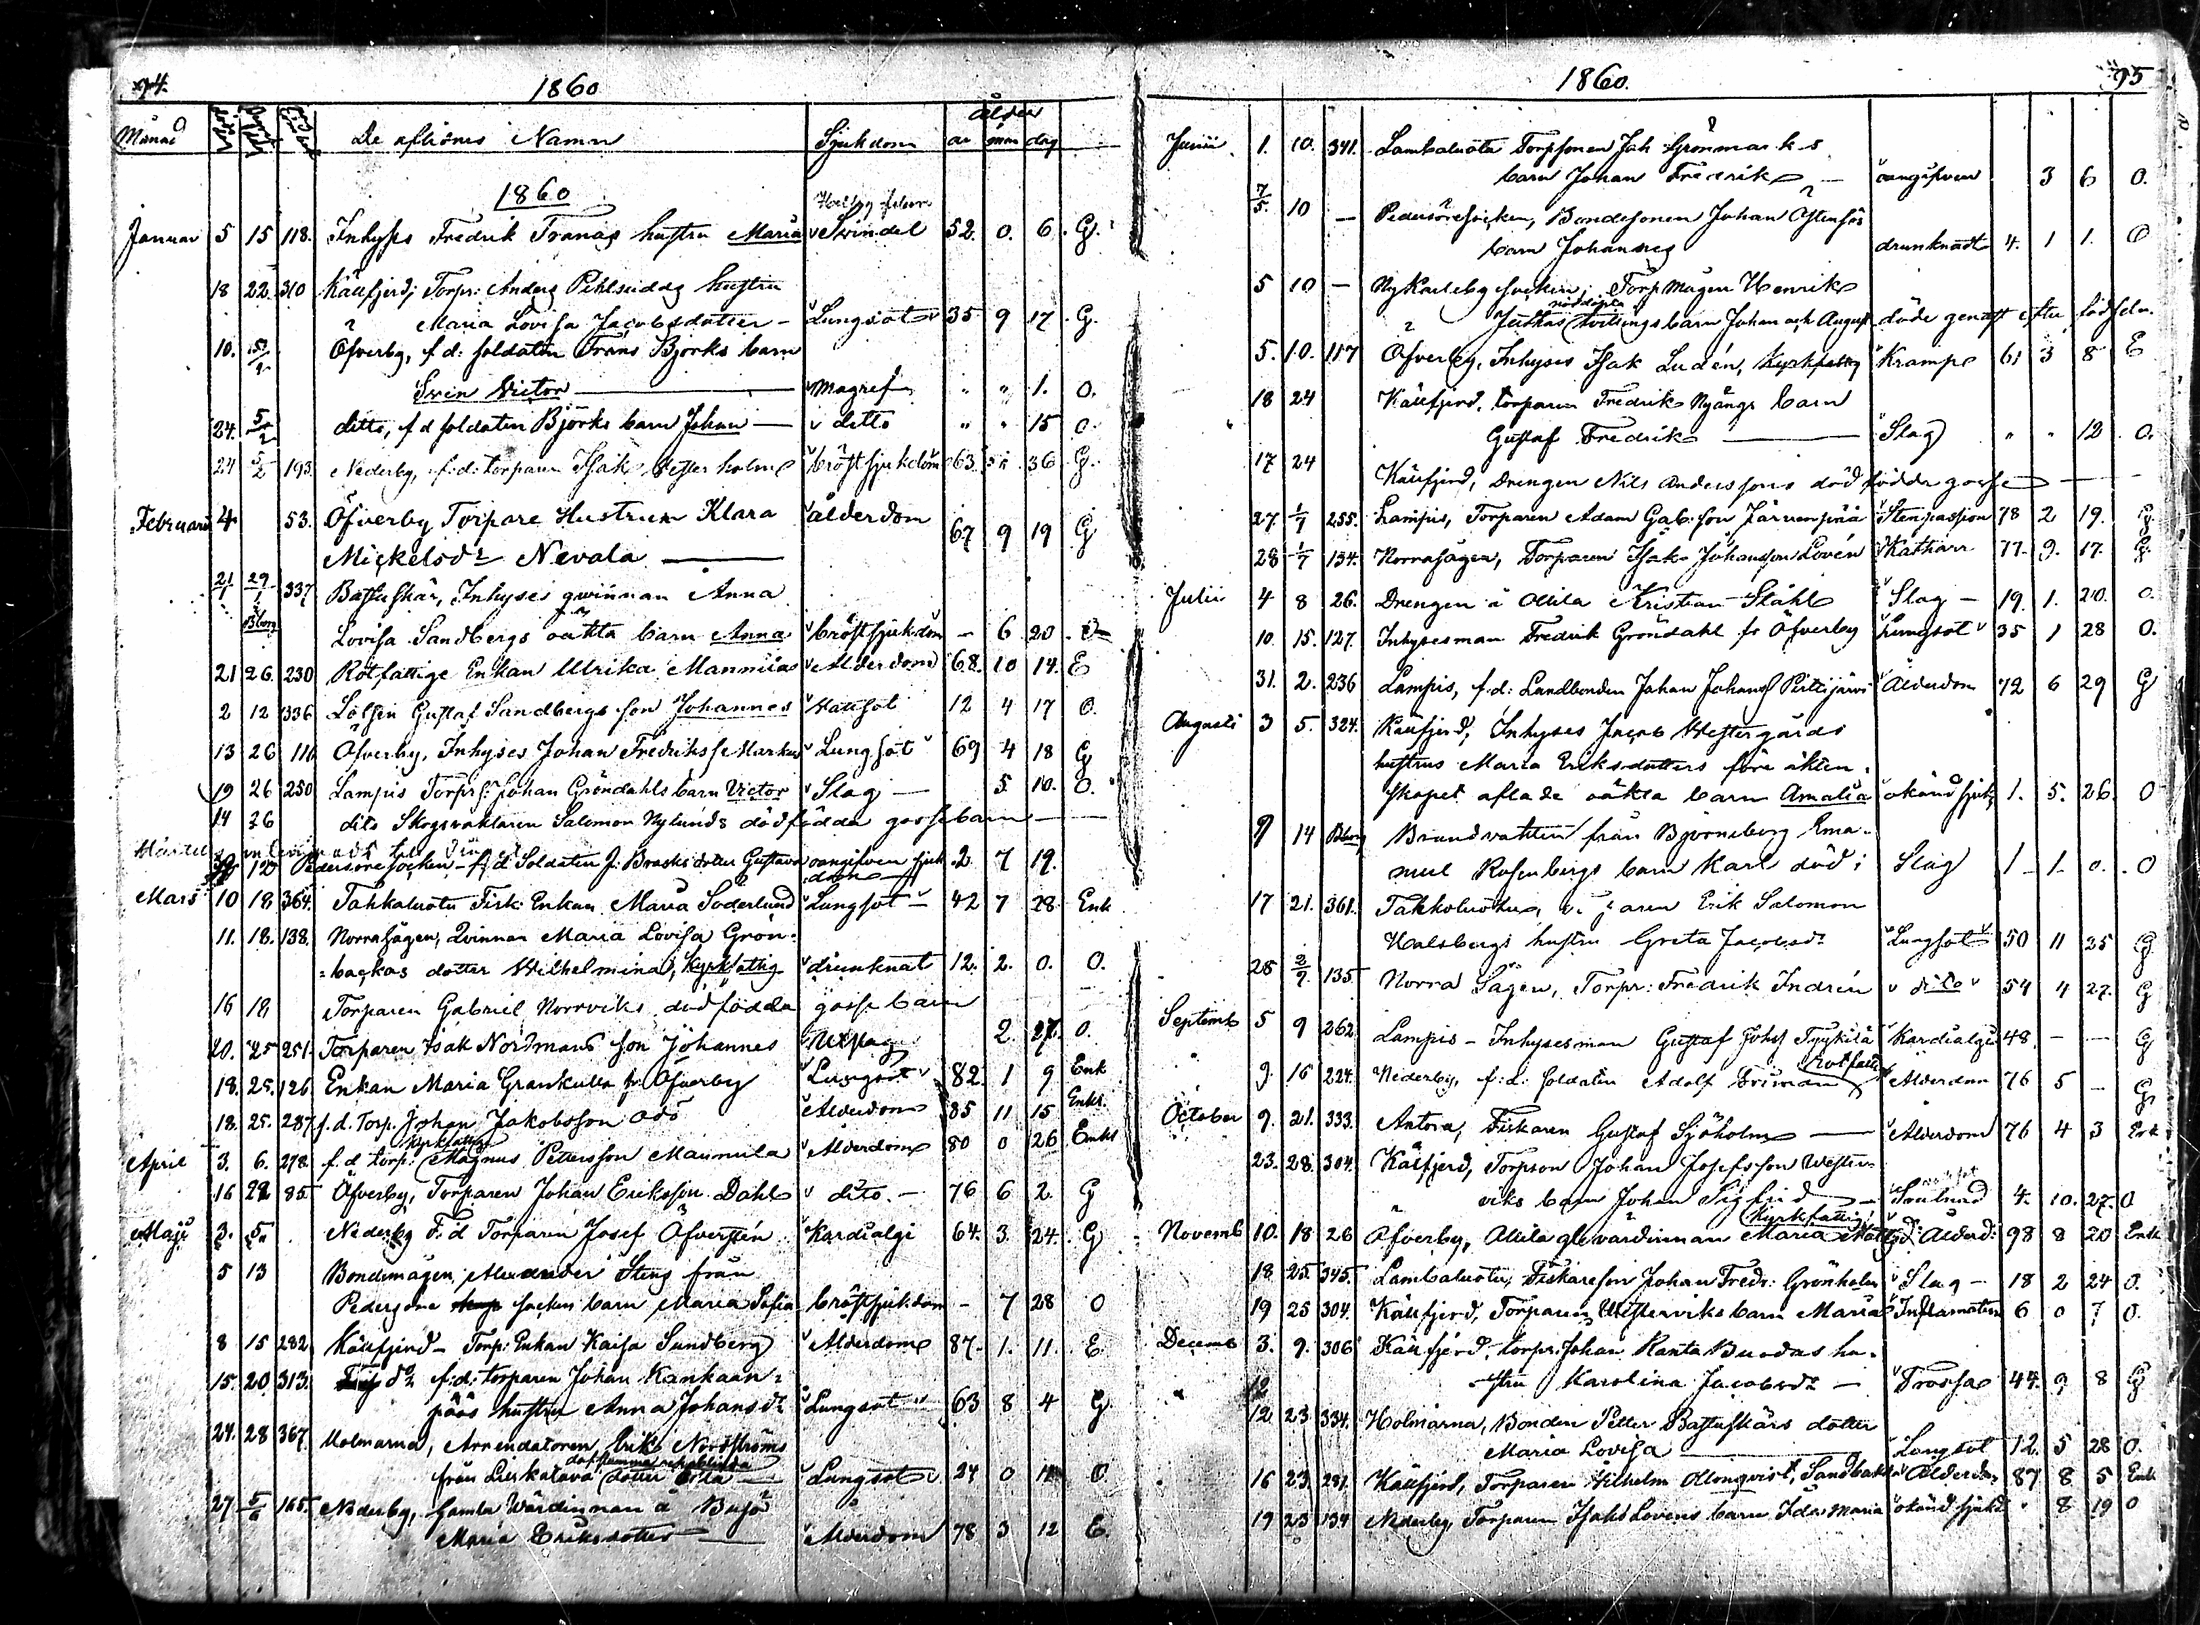 94.
1860
Månad De aflidnes Namn Sjukdom ålder år mån dag
1860
Januar 5 15 118. Inhyses Fredrik Tranas hustru Maria Svindel 52. 0. 6. G.
18 22 310 Källfjerd, Torpr: Anders hustru
Maria Lovisa Jacobsdotter – Lungsot 35 9 17. G.
10. 5/2 Öfverby, f.d: soldaten Frans Björks barn
Sven Victor — Magref " " 1. O.
24. 5/2 ditto, f d soldaten Björks barn Johan — ditto " " 15 O.
24 5/2 193. Nederby, f:d: torparen Isak Vesterholm bröstsjukdom 63. 36. G.
Februari 4 53. Öfverby Torpare Hustrun Klara ålderdom
Mickelsdr Nevala — 67 9 19 G
21/1 29/1 337 Bastuskär, Inhyses qvinnan Anna
Lovisa Sandbergs oäkta barn Anna bröstsjukdom – 6 20.
21 26. 230 Rotfattige Enkan Ulrika Mannilas Alderdom 68. 10 14. E
2 12 336 Lotsen Gustaf Sandbergs son Johannes 12 4 17 O.
13 26 116 Öfverby, Inhyses Johan Fredrikss Markus Lungsot 69 4 18 G
19 26 250 Lampis Torprs: Johan Gröndahls barn Victor Slag — 5. 10. O.
14 26 dito Skogsvaktaren Salomon Nylunds dödfödda gossebarn —
12 Pedersöre socken – f. d Soldaten J: Brasks dotter Gustava oangifven sjuk- 2. 7 19.
dom
Mars 10 18 364. Tahkaluoto Fisk: Enkan Maria Söderlund Lungsot – 42 7 28. Enk
11. 18. 138. Norrasågen, Qvinnan Maria Lovisa Grön-
=backas dotter Wilhelmina, kyrkfattig drunknat 12. 2. 0. O.
16 18 Torparen Gabriel Norrviks dödfödda gossebarn
20. 25 251. Torparen Isak Nordmans son Johannes Utslag 2. 27. O.
18. 25. 126 Enkan Maria Grankulla fr. Öfverby Lungsot 82. 1 9 Enk
18. 25. 287. f. d. Torp. Johan Jakobsson Ödö Alderdom 85 11 15 Enkl.
kyrkfattig
April 3. 6. 278. f. d torp: Magnus Pettersson Maunula Alderdom 80 0 26 Enkl
16 22 85 Öfverby, Torparen Johan Eriksson Dahl dito. – 76 6 2. G
Maji 3. 5. Nederby F. d Torparen Josef Öfversten Kardialgi 64. 3. 24. G
5 13 Bondemågen, Alexander Stens från
Pedersöre socken barn Maria Sofia bröstsjukdom – 7 28 O
8 15 282. Källfjerd – Torp: Enkan Kaisa Sundberg Alderdom 87. 1. 11. E
15. 20 313. do f:d: torparen Johan Kankaan-
pääs hustru Anna Johansdr Lungsot 63 8 4 G
24. 28 367 Holmarna, Arrendatoren Erik Nordströms
från Lieskalava dotter Lungsot 24 0 O.
27 5/6 165. Nederby, Gamla Wärdinnan å Busö
Maria Eriksdotter — Alderdom 78 3 12 E.
1860.
95
Junii 1. 10. 341. Lambaluoto Torpsonen Joh Grönmarks
barn Johan Fredrik – oangifven 3 6 O.
7/5. 10 – Pedersöresocken, Bondesonen Johan
barn Johannes drunknadt 4. 1 1. O
5 10 – NyKarleby socken, Torpmågen Henrik
nöddöpta
Juthas tvillingsbarn Johan och August döde genast efter födseln.
5. 10. 117 Öfverby, Inhyses Isak Ludén, kyrkfattig Kramp 61 3 8 E
18 24 Källfjerd, torparen Fredrik Nyängs barn
Gustaf Fredrik — Slag " " 12 O.
17 24 Källfjerd, Drengen Nils Anderssons dödfödda gosse —
27 1/7 255. Lampis, Torparen Adam Gab:son Järvenpää Stenpassion 78 2 19. G.
28 1/7 134. Norrasågen, Torparen Isak Johansson Lovén Katharr 77. 9. 17. G.
Julii 4 8 26. Drengen å Ollila Kristian Ståhl Slag – 19. 1. 20. O.
10. 15. 127. Inhysesman Fredrik Gröndahl fr Öfverby Lungsot 35 1 28 O.
31. 2. 236 Lampis, f:d: Landbonden Johan Johanss Pirttijärvi Ålderdom 72 6 29 G
Augusti 3 5. 324. Källfjerd, Inhyses Jacob Westergårds
hustrus Maria Eriksdotters före äkten-
skapet aflade oäkta barn Amalia okänd sjukd 1. 5. 26. O
9 14 Bborg Brandvakten från Björneborg Ema-
nuel Rosenbergs barn Karl död i Slag 1 1. 0. O
17 21. 361. Tahkoluoto, Erik Salomon
Halsbergs hustru Greta Jacobsdr Lungsot 50 11 25 G
28 2/9. 135 Norra Sågen, Torpr: Fredrik Indrén dito 54 4 27. G
Septemb 5 9 262 Lampis – Inhysesman Gustaf Johss Tyykilä Kardialgi 48. – – G
Rotfattig
9. 16 224. Nederby, f:d: soldaten Adolf Alderdom 76 5 – G
October 9. 21. 333. Antora, Fiskaren Gustaf Sjöholm — Alderdom 76 4 3 Enk
23. 28. 304. Källfjerd, Torpson Johan Josefsson Wester-
viks barn Johan Sigfrid — 4. 10. 27. O
kyrkfattig
Novemb 10. 18 26 Öfverby, Ollila gle värdinnan Maria Ålderd: 98 8 20 Enk
18. 25. 345. Lambaluoto, Fiskareson Johan Fredr: Grönholm Slag – 18 2 24 O.
19 25 304. Källfjerd, Torparen Westerviks barn Maria Inflamation 6 0 7 O.
Decemb 3. 9. 306 Källfjerd, torpr. Johan Ranta Burdas hu-
stru Karolina Jacobsdr — Frossa 44. 9 8 G
12 23 334. Holmarna, Bonden Petter Bastuskärs dotter
Maria Lovisa — Lungsot 12. 5 28 O.
16 23 291. Källfjerd, Torparen Wilhelm Blomqvist, Sandbakka Ålderdom 87 8 5 Enk
19 23 134 Nederby, Torparen Isaks Lovens barn Ida Maria okänd sjukd " 8 19 O